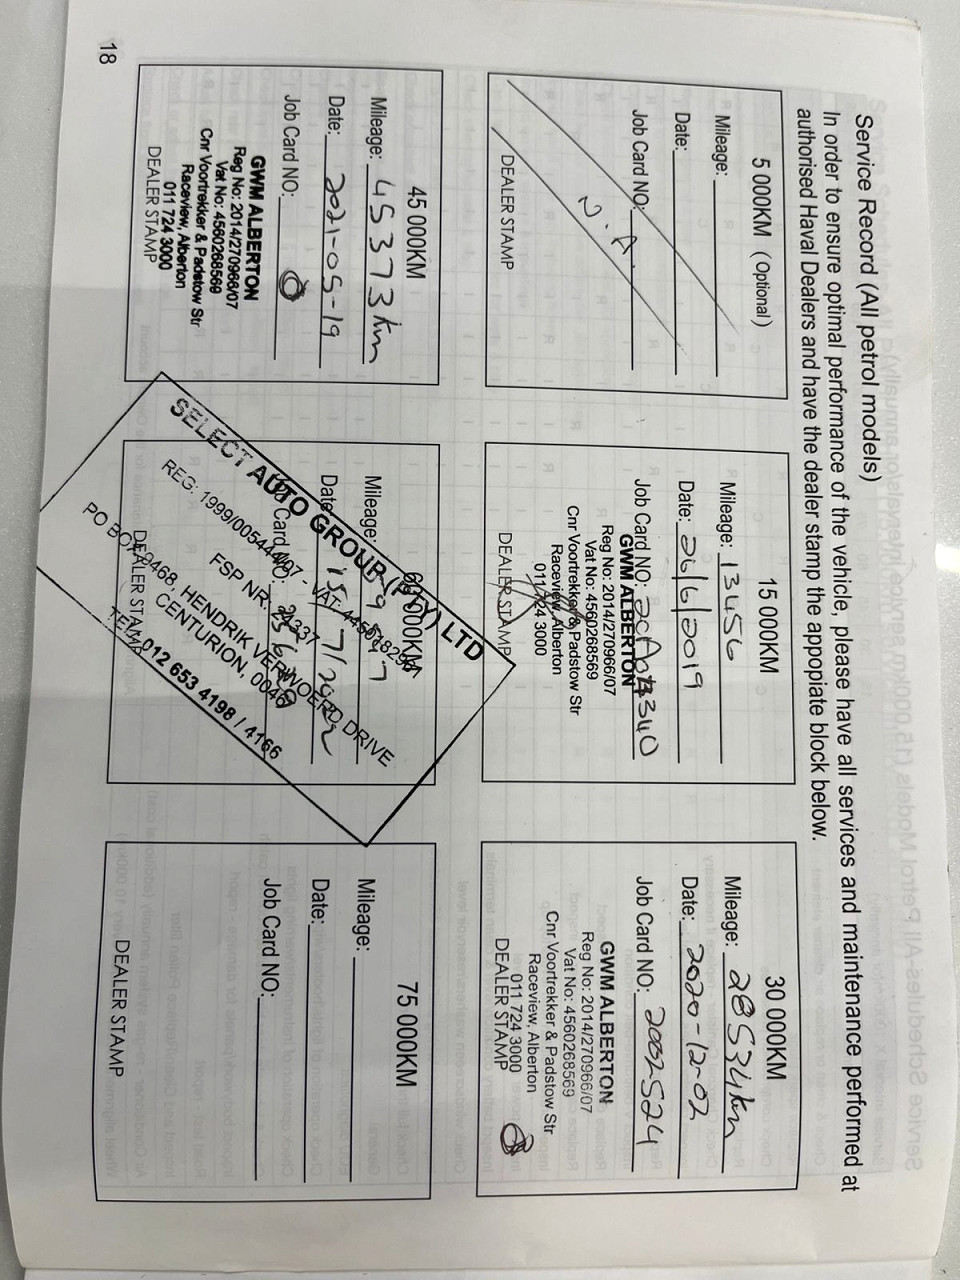 Service Record (All petrol models)
In order to ensure optimal performance of the vehicle, please have all services and maintenance performed at
authorised Haval Dealers and have the dealer stamp the appopiate block below.
5 000KM (Optional)
Mileage:
Date:
Job Card NO:
N.A.
DEALER STAMP
15 000KM
Mileage: 13456
Date: 26/6/2019
Job Card NO:
GWM ALBERTON
Reg No: 2014/270966/07
Vat No: 4560268569
Cnr Voortrekker & Padstow Str
Raceview, Alberton
011 724 3000
DEALER STAMP
30 000KM
Mileage: 28534km
Date: 2020-12-02
Job Card NO: 2002524
GWM ALBERTON
Reg No: 2014/270966/07
Vat No: 4560268569
Cnr Voortrekker & Padstow Str
Raceview, Alberton
011 724 3000
DEALER STAMP
45 000KM
Mileage: 45373km
Date: 2021-05-19
Job Card NO:
GWM ALBERTON
Reg No: 2014/270966/07
Vat No: 4560268569
Cnr Voortrekker & Padstow Str
Raceview, Alberton
011 724 3000
DEALER STAMP
60 000KM
Mileage:
Date: 15/7/2022
Job Card NO:
DEALER STAMP
SELECT AUTO GROUP (PTY) LTD
REG: 1999/005444/07 - VAT:
FSP NR: 24337
PO BOX HENDRIK VERWOERD DRIVE
CENTURION, 0046
TEL: 012 653 4198 / 4166
75 000KM
Mileage:
Date:
Job Card NO:
DEALER STAMP
18